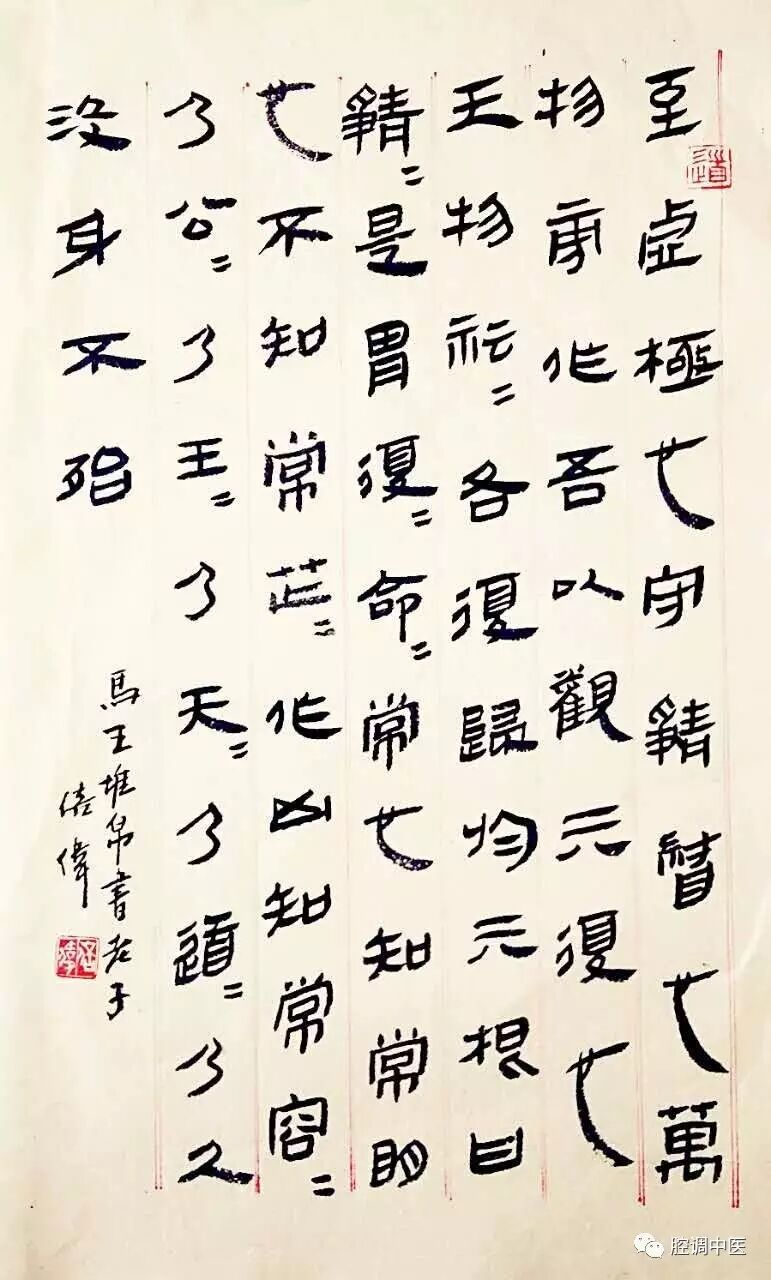 至虛極也守靜督也萬
物旁作吾以觀亓復也
天物各復歸於亓根曰
靜=是胃復=命=常也知常明
也不知常芒=作凶知常容=
乃公=乃王=乃天=乃道=乃久
沒身不殆
馬王堆帛書老子
偉
道
腔调中医